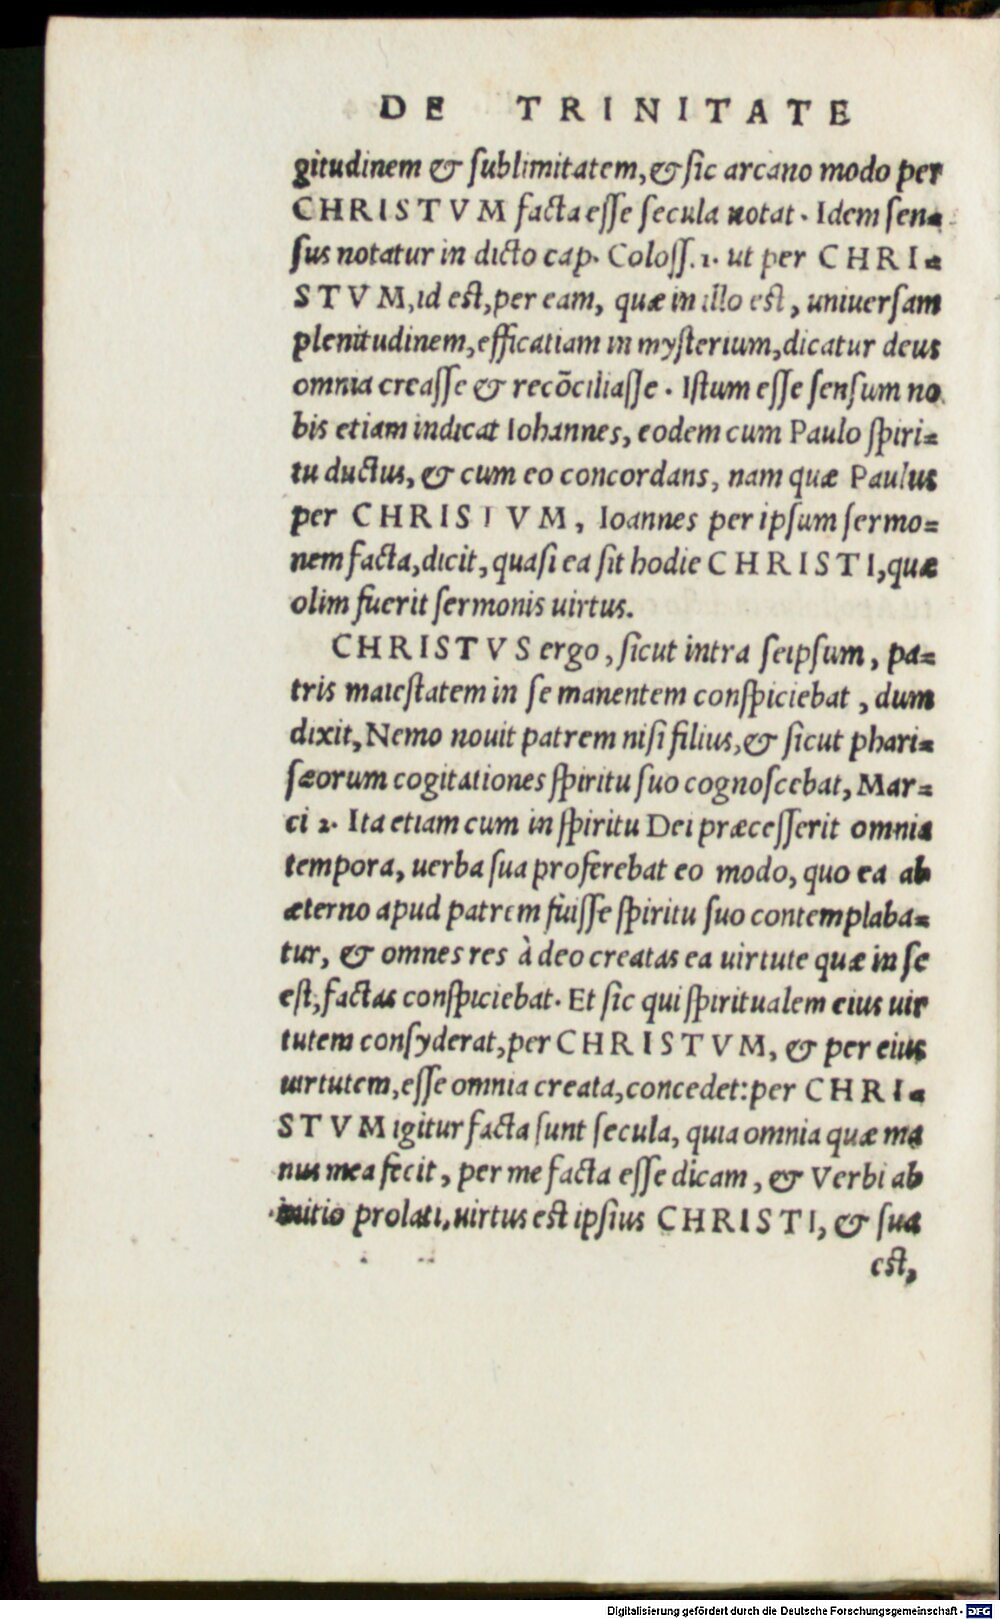 DE TRINITATE
gitudinem & sublimitatem, & sic arcano modo per
CHRISTVM facta esse secula notat. Idem sen=
sus notatur in dicto cap. Coloss. 1. ut per CHRI=
STVM, id est, per eam, quæ in illo est, uniuersam
plenitudinem, efficatiam in mysterium, dicatur deus
omnia creasse & recōciliasse. Istum esse sensum no
bis etiam indicat Iohannes, eodem cum Paulo spiri=
tu ductus, & cum eo concordans, nam quæ Paulus
per CHRISTVM, Ioannes per ipsum sermo=
nem facta, dicit, quasi ea sit hodie CHRISTI, quæ
olim fuerit sermonis uirtus.
CHRISTVS ergo, sicut intra seipsum, pa=
tris maiestatem in se manentem conspiciebat, dum
dixit, Nemo nouit patrem nisi filius, & sicut phari=
sæorum cogitationes spiritu suo cognoscebat, Mar=
ci 2. Ita etiam cum in spiritu Dei præcesserit omnia
tempora, uerba sua proferebat eo modo, quo ea ab
æterno apud patrem fuisse spiritu suo contemplaba=
tur, & omnes res à deo creatas ea uirtute quæ in se
est, factas conspiciebat. Et sic qui spiritualem eius uir
tutem consyderat, per CHRISTVM, & per eius
uirtutem, esse omnia creata, concedet: per CHRI=
STVM igitur facta sunt secula, quia omnia quæ ma
nus mea fecit, per me facta esse dicam, & Verbi ab
initio prolati, uirtus est ipsius CHRISTI, & sua
est,
Digitalisierung gefördert durch die Deutsche Forschungsgemeinschaft - DFG